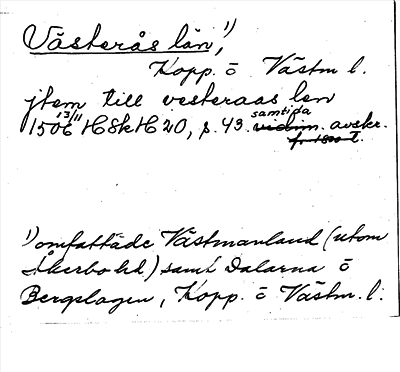 Västerås län, 1)
Kopp. o Västm l.
jtem till vesteraas len
1506 13/11 HSkH 20, s. 43. samtida avskr.
1) omfattade Västmanland (utom
Åkerbo hd) samt Dalarna o
Bergslagen, Kopp. o Västm. l.